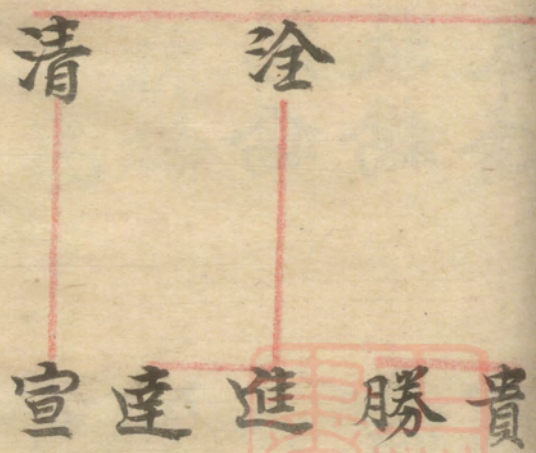 洤 清
貴 勝 進 達 宣